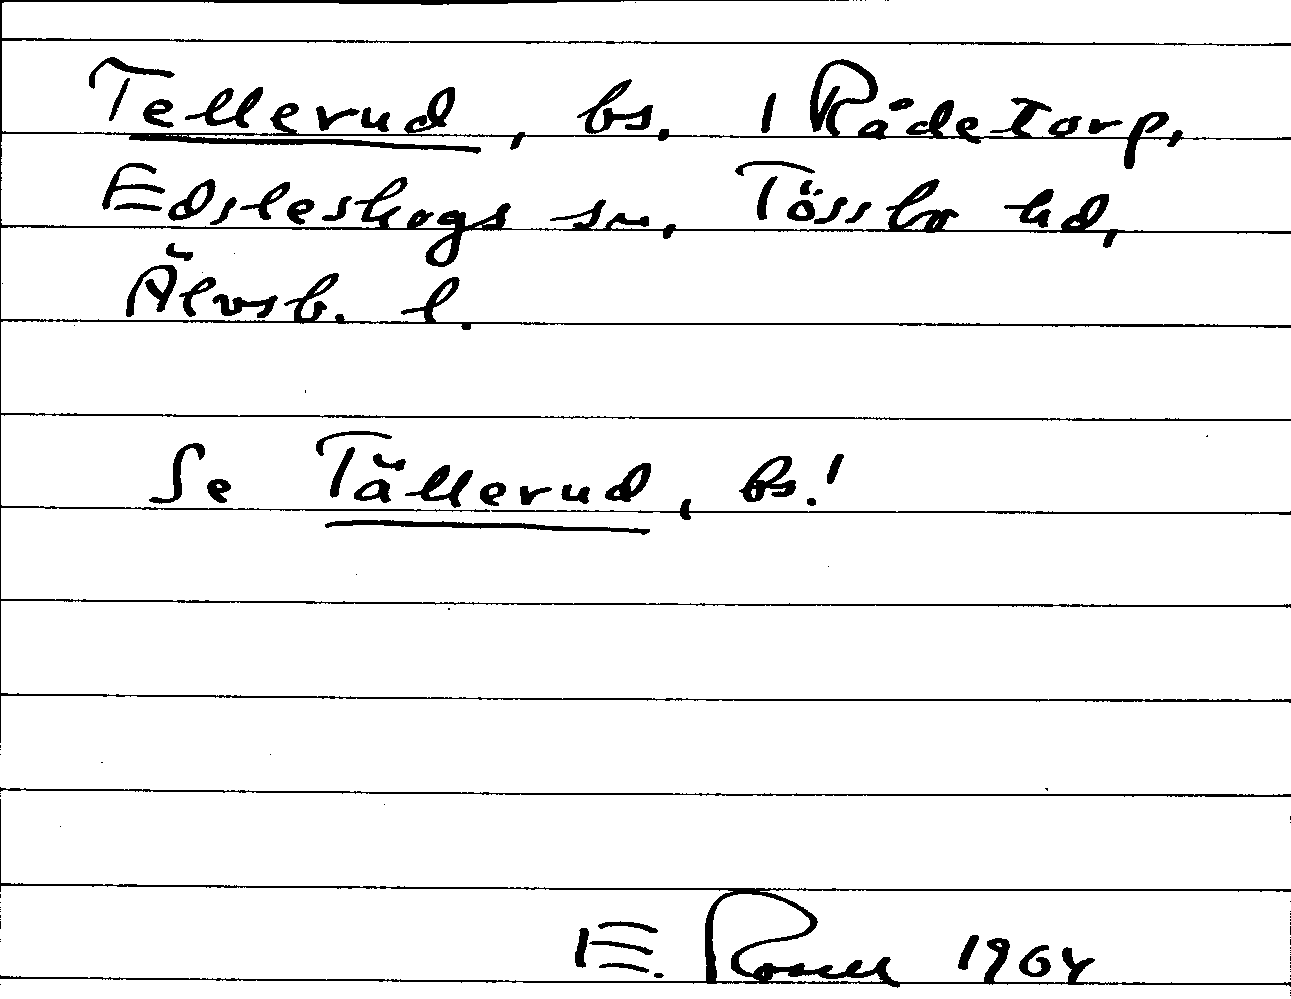 Tellerud, bs. i Rådetorp,
Edsleskogs sn, Tössbo hd,
Älvsb. l.
Se Tällerud, bs.!
E. Rosell 1964